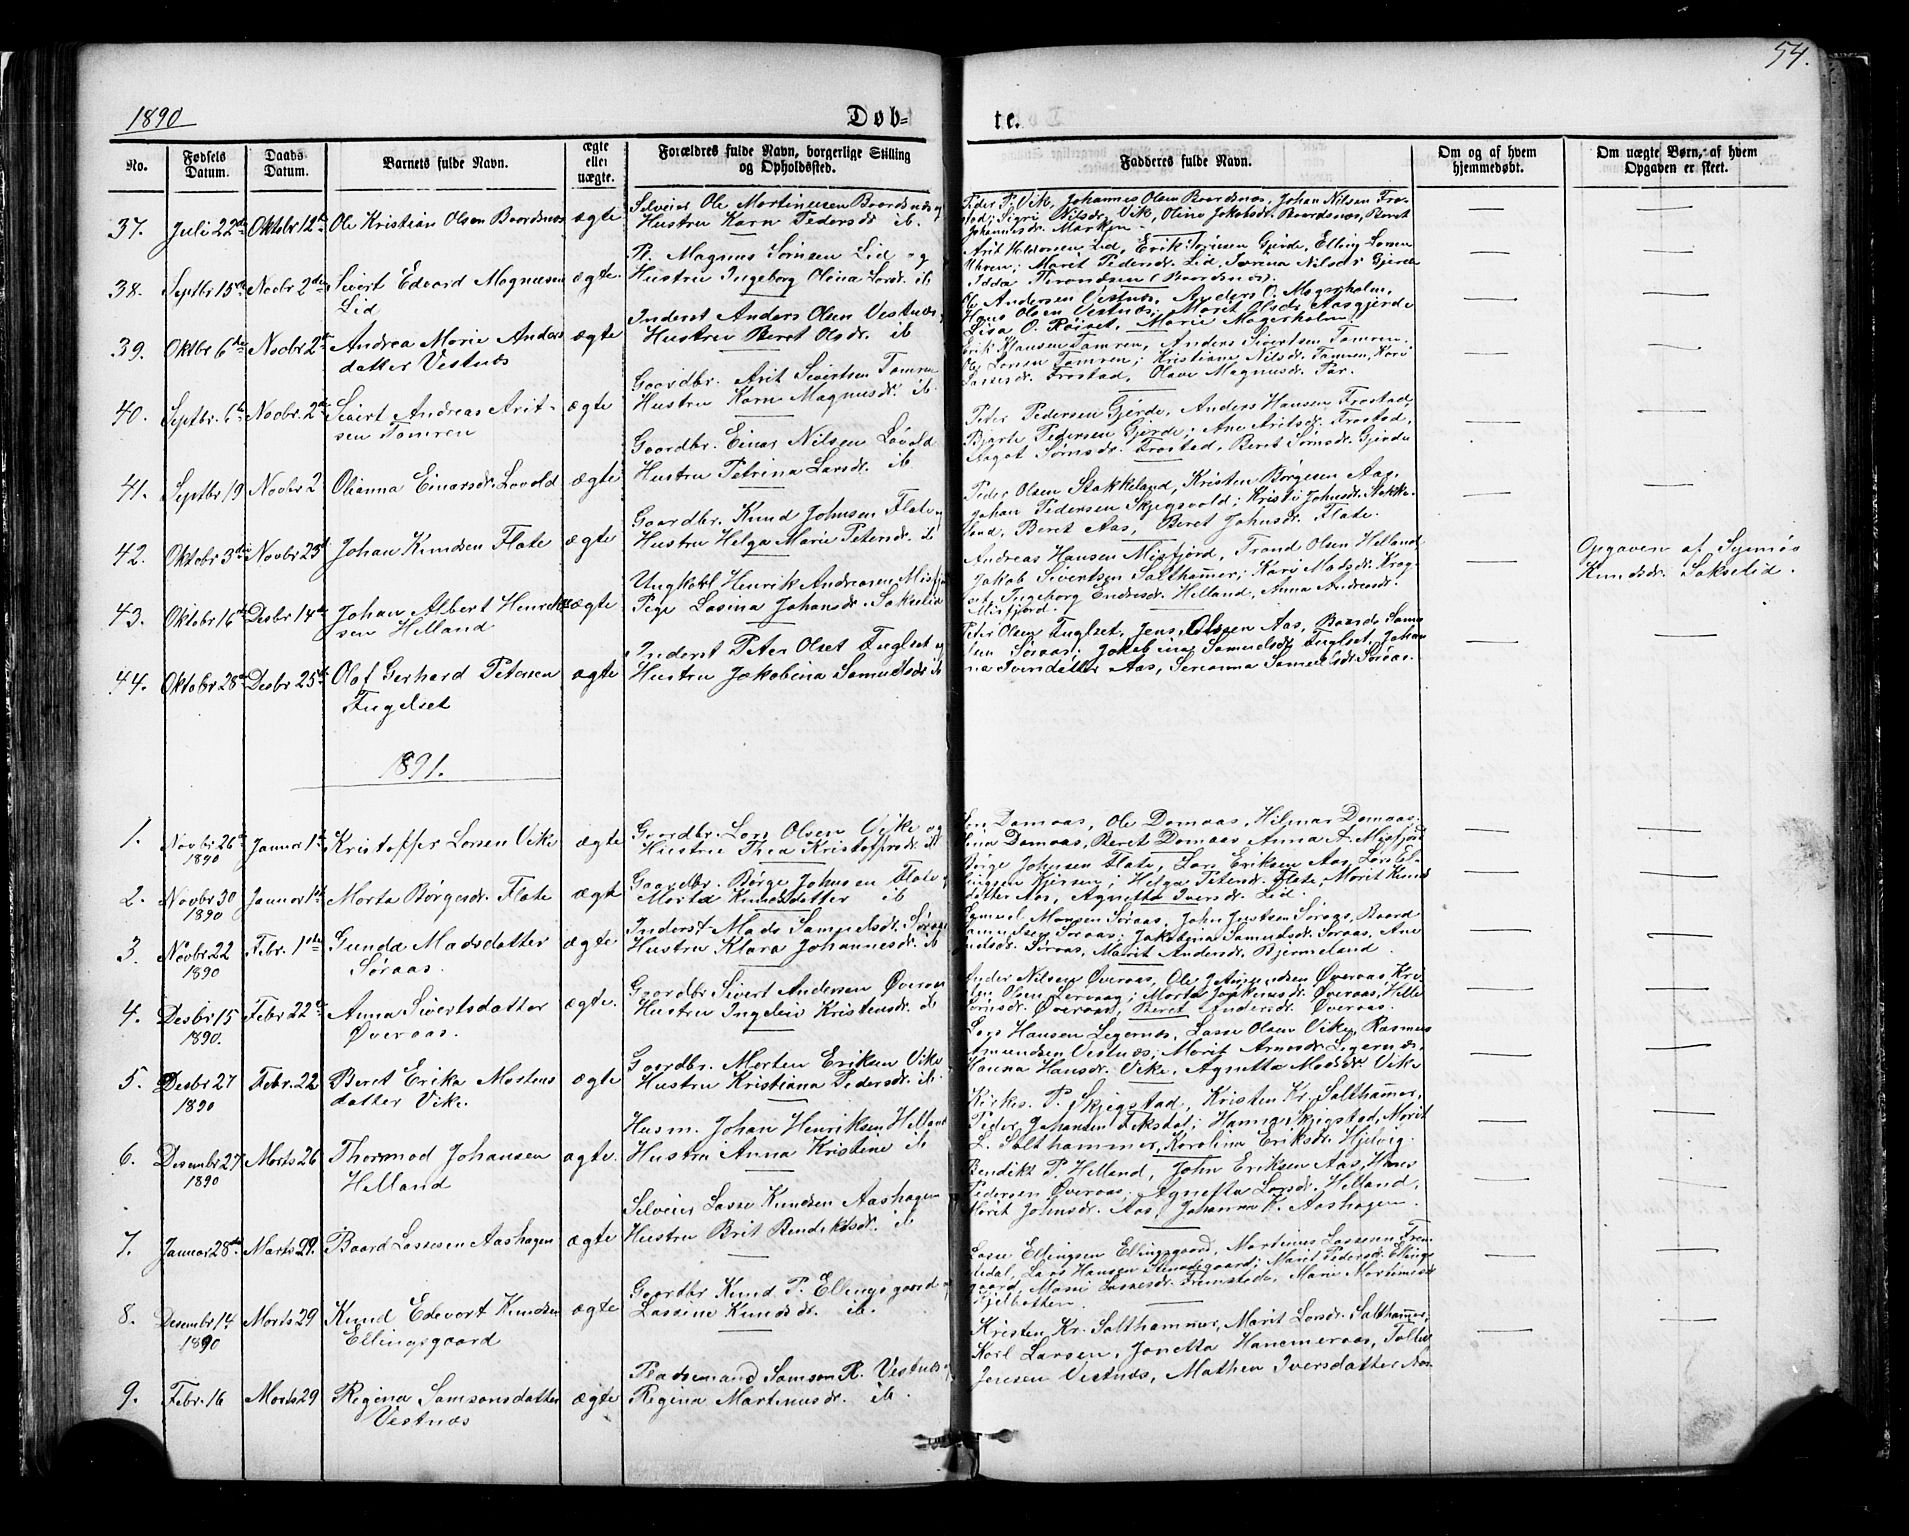 54.
1890
Døb-
te.
No.
Fødsels Datum.
Daabs Datum.
Barnets fulde Navn.
ægte eller uægte.
Forældres fulde Navn, borgerlige Stilling og Opholdssted.
Fadderes fulde Navn.
Om og af hvem hjemmedøbt.
Om uægte Børn, af hvem Opgaven er skeet.
37. Juli 22de Oktobr 12te Ole Kristian Olsen Boordsnæs ægte
Selveier Ole Mortinusen Boordsnæs og
Hustru Karn Pedersdr ib.
Peder P. Vik, Johannes Olsen Boordsnæs, Johan Nilsen Fro-
stad; Sigri Nilsdr. Vik, Olina Jakobsdr. Boordsnæs, Beret
Johannesdr. Marken
38. Septbr 15de Novbr 2den Sivert Edvard Magnusen
Lid
ægte
B. Magnus Sørnsen Lid og
Hustru Ingeborg Olina Larsd. ib
Arit Lid, Erik Sørnsen Gjerde, Elling Larsen
Uhren; Marit Pedersdr. Lid, Nilsdr Gjerde
Idda Boordsnæs
39. Oktbr 6te Novbr 2den Andrea Marie Anders
datter Vestnæs
ægte
Inderst Anders Olsen Vestnæs
Hustru Beret Olsdr. ib
Ole Andersen Vestnæs, Anders O. Magerholm,
Hans Olsen Vestnæs, Marit Olsdr. Aasgjerde
Lisa O. Røiset, Marie Magerholm
40. Septbr. 6te Novbr. 2den Sivert Andreas Arit-
sen Tomren
ægte
Gaardbr. Arit Sivertsen Tomren
Hustru Karn Magnusdr ib.
Erik Hansen Tomren, Anders Sivertsen Tomren.
Ole Larsen Tomren; Kristiane Nilsdr. Tomren, Kari
Lassesdr. Frostad, Olave Magnusdr. Par.
41. Septbr 19 Novbr 2 Olianna Einarsdr. Lovold ægte
Gaardbr. Einar Nilsen Lovold
Hustru Petrina Larsdr. ib
Peder Pedersen Gjerde, Anders Hansen Frostad
Bjarte Pedersen Gjerde; Ane Aritsdr. Frostad,
Magot Sørnsdr. Frostad, Beret Sørnsdr. Gjerde
42. Oktobr 3die Novbr 23de Johan Knudsen Flate ægte
Gaardbr. Knud Johnsen Flate og
Hustru Helga Marie Petersd. ib
Peder Olsen Stokkeland, Kristen Børgesen Aas,
Johan Pedersen Skjegsvold; Kristi Johnsdr. Stokke-
land, Beret Aas, Beret Johnsdr. Flate.
43. Oktobr 16de Desbr 14de Johan Albert Henrik-
sen Helland
uægte
Ungkarl Henrik Andreasen Misfjord
Pige Lasina Johansdr. Sakselid
Andreas Hansen Misfjord, Trond Olsen Helland
Jakob Sivertsen Salthammer; Kari Madsdr. Krog-
set, Ingeborg Endresdr. Helland, Anna Andreasdr.
Misfjord.
Opgaven af
Knudsdr. Sakselid.
44. Oktobr 28de Desbr 25de Olaf Gerhard Petersen
Fugelset
ægte
Inderst Peter Olset Fuglset og
Hustru Jakobina Samuelsdr ib
Peter Olsen Fuglset, Jens Olsen Aas, Baard Samu-
elsen Søraas; Jakobina Samuelsdr Fuglset, Johan-
na Iversdatter Aas, Sereanna Samuelsdr. Søraas.
1891.
1. Novbr 26de
1890
Januar 1ste Kristoffer Larsen Vike ægte
Gaardbr. Lars Olsen Vike og
Hustru Thea Kristoffersdr. ib
Jon Domaas, Ole Domaas, Hilmar Domaas;
Domaas, Beret Domaas Anna A. Misfjord
2. Novbr 30
1890
Januar 1ste Marta Børgesdr. Flate ægte
Gaardbr. Børge Johnsen Flate og
Marta Knudsdatter ib
Børge Johnsen Flate, Lars Eriksen Aas, Lars El-
lingsen Kjersen; Helga Petersd. Flate, Marit Knuds
datter Aas, Agnetta Iversdr. Lid
3. Novbr 22
1890
Febr. 1ste Gunda Madsdatter
Søraas.
ægte
Inderst Mads Samuelsdr. Søraas
Hustru Klara Johannesdr. ib
Samuel Monsen Søraas, John Jensen Søraas, Baard
Samuelsen Søraas; Jakobina Samuelsdr. Søraas, Ane
Søraas, Marit Andersdr. Bjermeland
4. Desbr 15
1890.
Febr 22de Anna Sivertsdatter
Øveraas.
ægte
Gaardbr Sivert Andersen Øveraas
Hustru Ingeleiv Kristensdr. ib
Peder Nilsen Øveraas, Ole Øveraas, Kri-
sten Olsen Lervaag; Marta Øveraas, Helle
Sørnsdr. Øveraas, Beret Andersdr. Øveraas.
5. Desbr 27
1890
Febr. 22 Beret Erika Mortens
datter Vike.
ægte
Gaardbr. Morten Eriksen Vike
Hustru Kristiana Pedersdr. ib.
Lars Hansen Legernæs, Lasse Olsen Vike, Rasmus
Amundsen Vestnæs; Marit Arnesdr. Legernæs,
Hanna Hansdr. Vike, Agnetta Madsdr Vike
6. Desembr 27
1890
Marts 26 Thormod Johansen
Helland
ægte
Husm. Johan Henriksen Helland
Hustru Anna Kristine ib
Kirkes. P. Skjegstad, Kristen Kr. Salthammer,
Peder Johansen Teksdal; Hanna Skjegstad, Marit
L. Salthammer, Karolina Eriksdr. Hjelvig.
7. Januar 28de Marts 29. Baard Lassesen Aashagen ægte
Selveier Lasse Knudsen Aashagen
Hustru Brit Bendiksdr. ib
Bendikt P. Helland, John Eriksen Aas, Hans
Pedersen Øveraas; Agnetta Larsdr. Helland,
Marit Johnsdr. Aas, Johanna K. Aashagen.
8. Desembr 14
1890
Marts 29 Knud Edevart Knudsen
Ellingsgaard
ægte
Gaardbr Knud P. Ellingsgaard og
Lassine Knudsdr. ib.
Lasse Ellingsen Ellingsgaard, Martinus Lassesen Frem-
stedal, Lars Hansen; Marit Pedersdr. Ellings-
gaard, Marie Lassesdr. Fremstedal, Marie Martinusdr
Hjelbotten
9. Febr. 16 Marts 29 Regina Samsonsdatter
Vestnæs
ægte
Pladsemand Samson R. Vestnæs og
Regina Martinusdr. ib.
Kristen Kr. Salthammer, Marit Larsdr. Salthammer,
Karl Larsen, Jonetta Hammeraas,
Jensen Vestnæs, Mathea Iversdatter